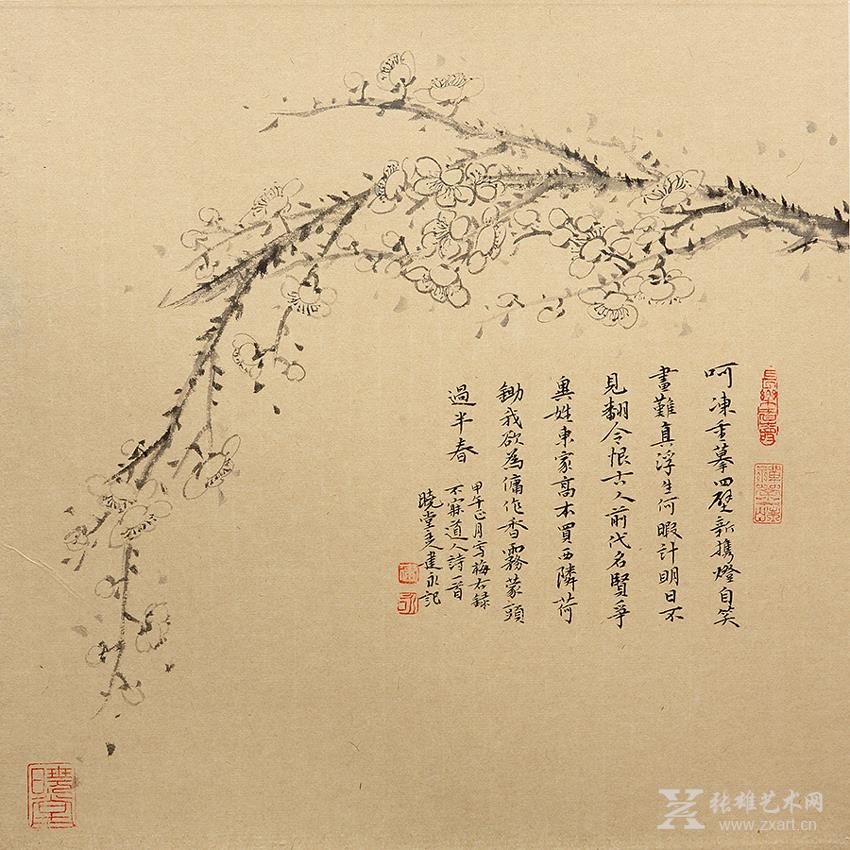 呵凍重摹四壁新攜燈自笑
畫難真浮生何暇計明日不
見翻令恨古人前代名賢爭
異姓東家高木買西隣荷
鋤我欲為傭作香霧蒙頭
過半春
甲午正月寫梅右録
不寐道人詩一首
曉堂建永記
長樂
曉堂
张雄艺术网
www.zxart.cn